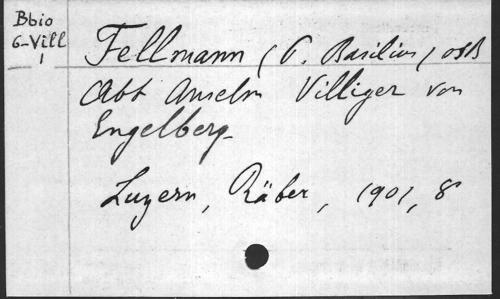 Bbio
6-Vill
1
Fellmann (P. Basilius) OSB
Abt Anselm Villiger von
Engelberg-
Luzern, Räber, 1901, 8°